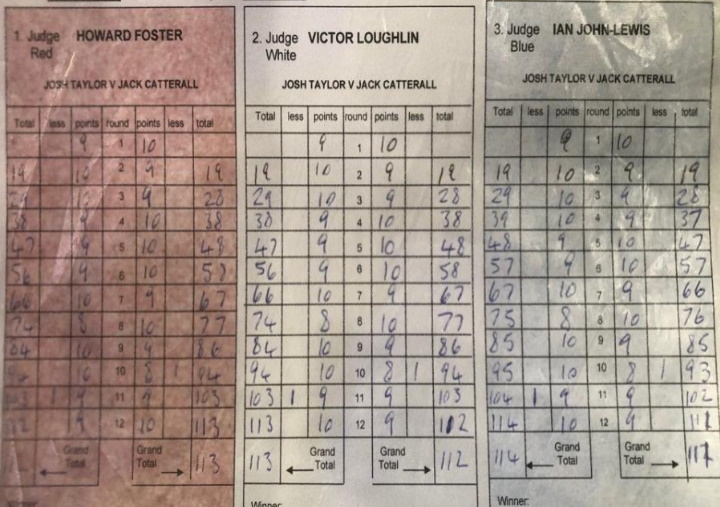 1. Judge HOWARD FOSTER
Red
JOSH TAYLOR V JACK CATTERALL
Total less points round points less total
9 1 10
19 10 2 9 19
29 10 3 9 28
38 9 4 10 38
47 9 5 10 48
56 9 6 10 58
66 10 7 9 67
74 8 8 10 77
84 10 9 9 86
94 10 10 8 1 94
103 1 9 11 9 103
112 9 12 10 113
Grand Total Grand Total 113
2. Judge VICTOR LOUGHLIN
White
JOSH TAYLOR V JACK CATTERALL
Total less points round points less total
9 1 10
19 10 2 9 19
29 10 3 9 28
38 9 4 10 38
47 9 5 10 48
56 9 6 10 58
66 10 7 9 67
74 8 8 10 77
84 10 9 9 86
94 10 10 8 1 94
103 1 9 11 9 103
113 10 12 9 112
113 Grand Total Grand Total 112
Winner:
3. Judge IAN JOHN-LEWIS
Blue
JOSH TAYLOR V JACK CATTERALL
Total less points round points less total
9 1 10
19 10 2 9 19
29 10 3 9 28
39 10 4 9 37
48 9 5 10 47
57 9 6 10 57
67 10 7 9 66
75 8 8 10 76
85 10 9 9 85
95 10 10 8 1 93
104 1 9 11 9 102
114 10 12 9 111
114 Grand Total Grand Total 111
Winner: